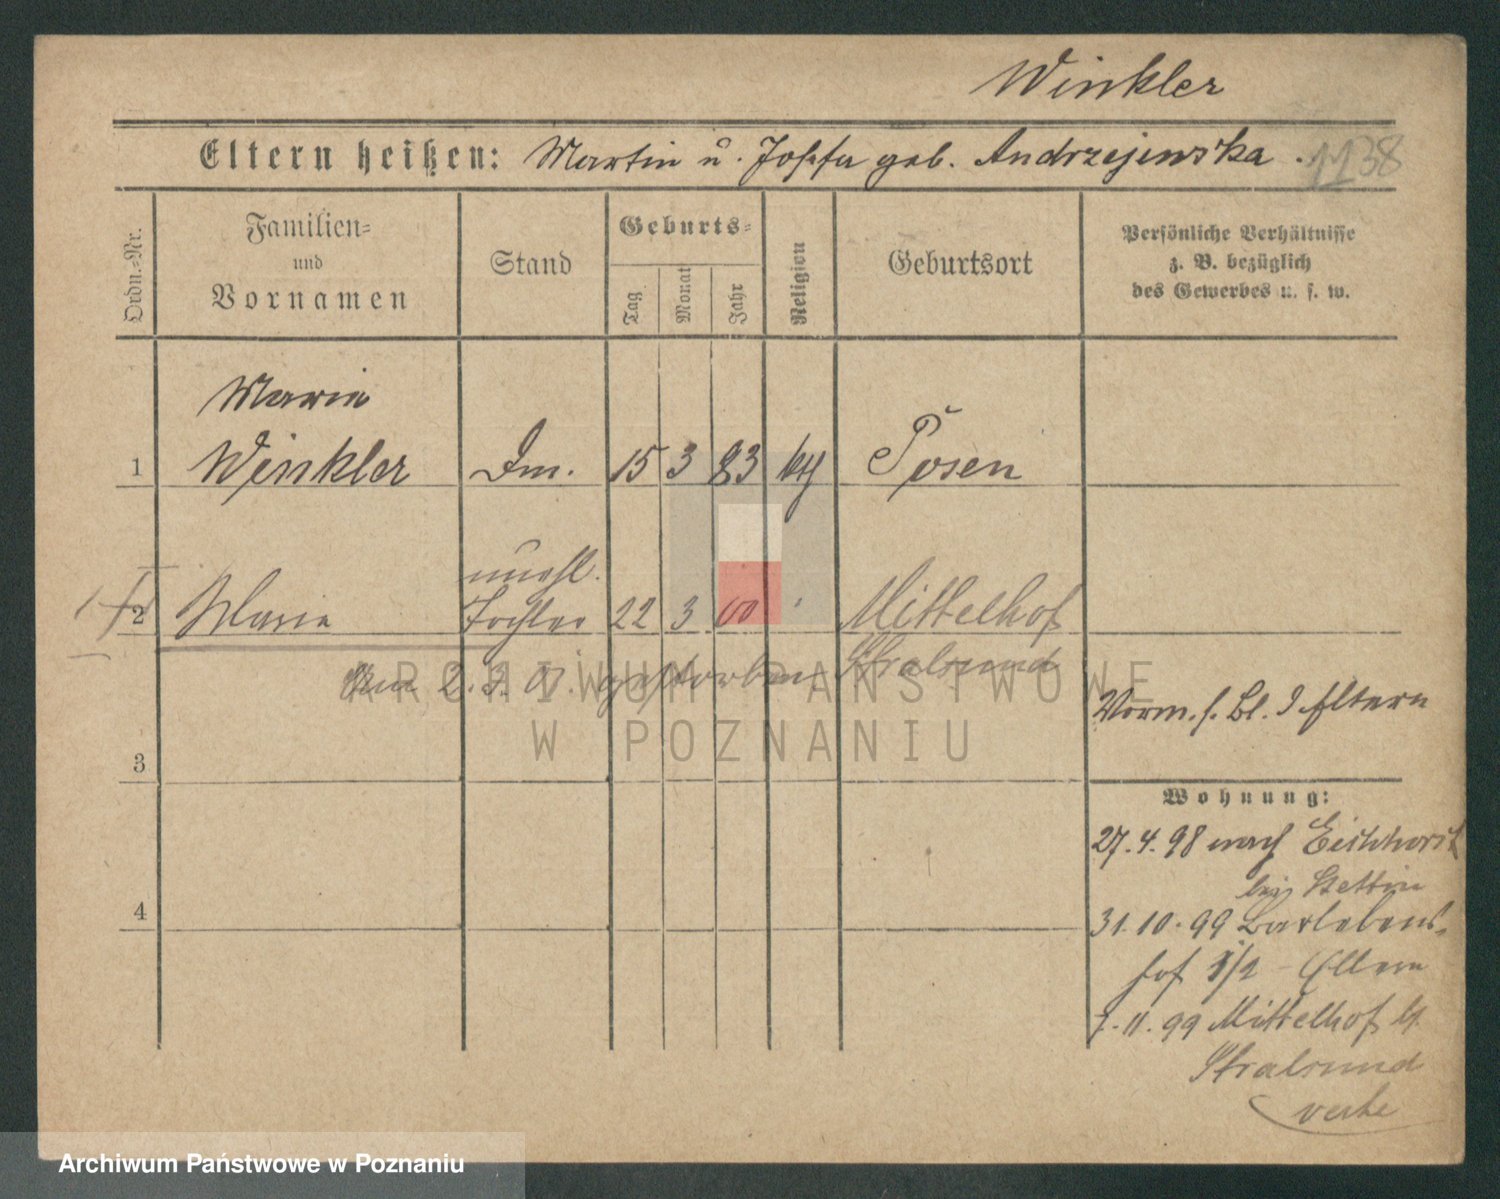 Winkler
Eltern heißen: Martin u. Josefa geb. Andrzejewska.
1138
Ordn.-Nr.
Familien-
und
Vornamen
Stand
Geburts-
Tag
Monat
Jahr
Religion
Geburtsort
Persönliche Verhältnisse
z. B. bezüglich
des Gewerbes u. s. w.
Maria
1 Winkler Dm. 15 3 83 kth Posen
unehl.
2 Maria Tochter 22 3 00 Mittelhof
Stralsund
2. 3. 01. gestorben
Vorm. s. Bl. d Eltern
3
Wohnung:
27. 4. 98 nach Eichhorst
bei Stettin
4
31. 10. 99 Barlebens-
hof 1/2 - Eltern
7. 11. 99 Mittelhof b/
Stralsund
ARCHIWUM PAŃSTWOWE
W POZNANIU
Archiwum Państwowe w Poznaniu